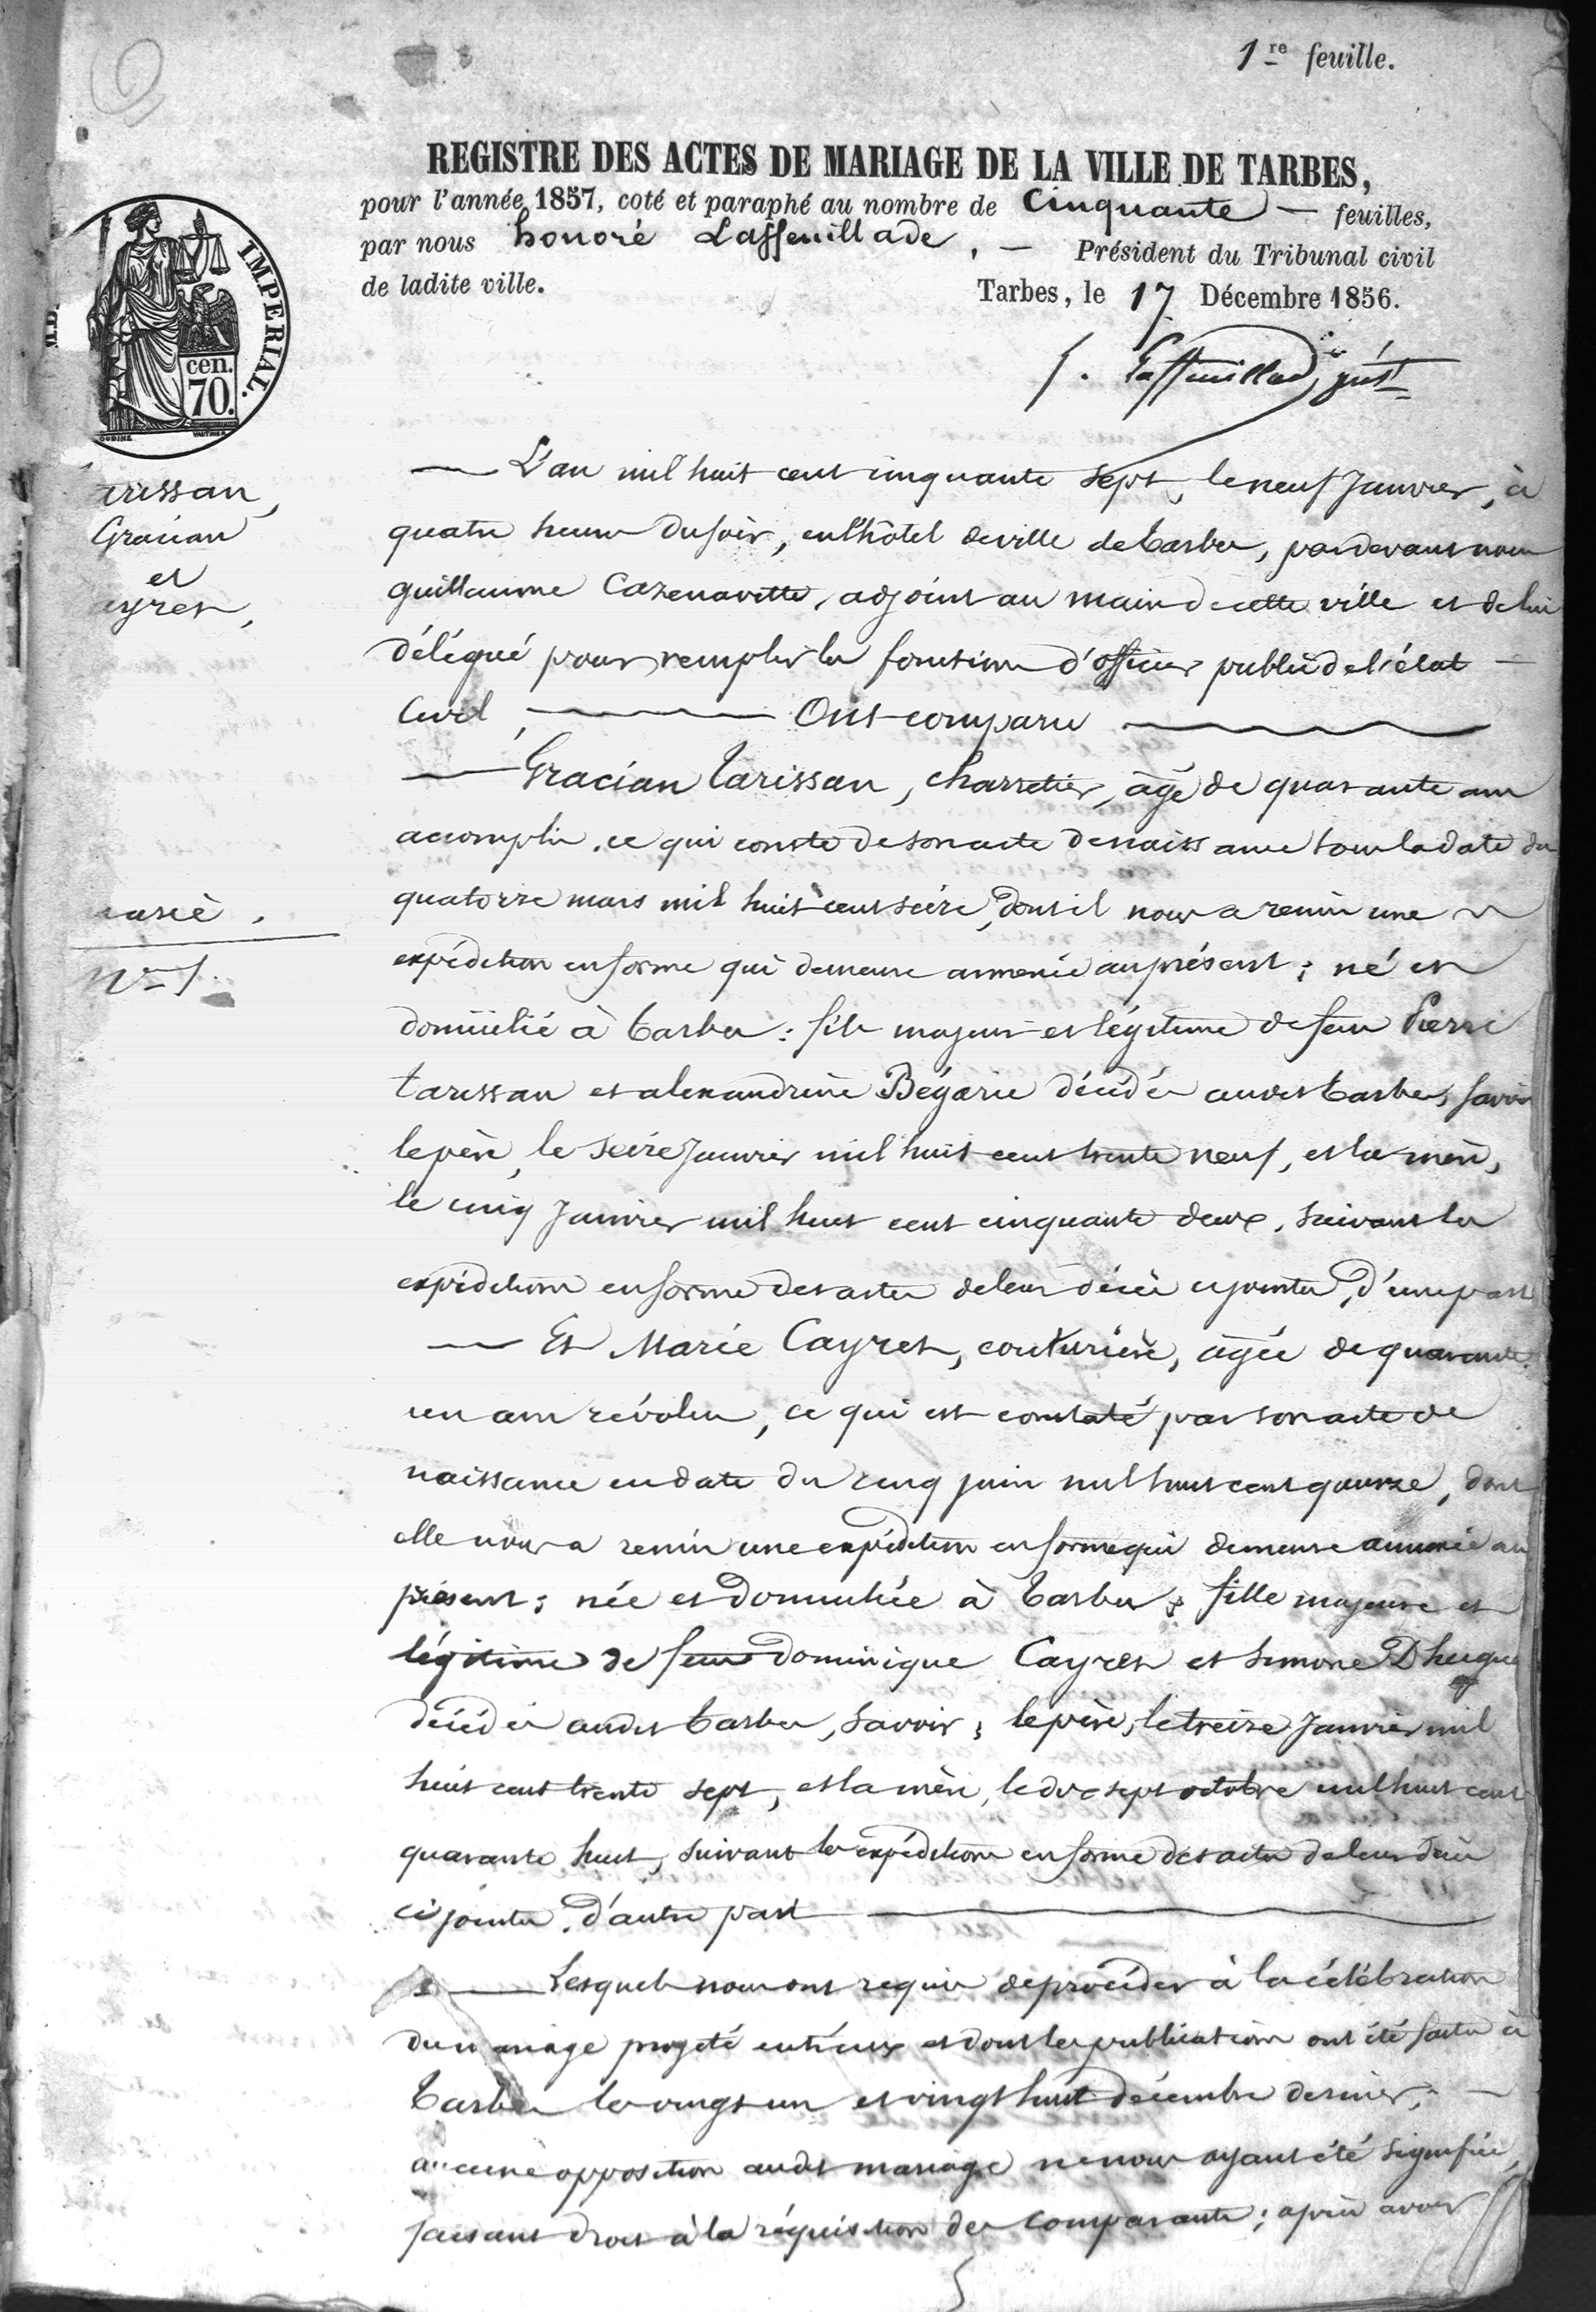 1re feuille.
REGISTRE DES ACTES DE MARIAGE DE LA VILLE DE TARBES,
pour l'année 1857, coté et paraphé au nombre de Cinquante — feuilles,
par nous honoré Laffeuillade, — Président du Tribunal civil
de ladite ville.
Tarbes, le 17 Décembre 1856.
IMPERIAL.
cen.
70.
OUDINÉ
h. Laffeuillade, prést
— L'an mil huit cent cinquante sept, le neuf Janvier, à
quatre heures du soir, en l'hôtel de ville de Tarbes, pardevant nous
guillaume Cazenavette, adjoint au maire de cette ville et de lui
délégué pour remplir les fonctions d'officier public de l'état —
Civil, — Ont comparu —
— Gracian Tarissan, charretier, âgé de quarante ans
accomplis, ce qui conste de son acte de naissance sous la date du
quatorze mars mil huit cent seize, dont il nous a remis une
expédition en forme qui demeure annexée au présent; né et
domicilié à Tarbes: fils majeur et légitime de feux Pierre
tarissan et alexandrine Bégarie décédés audit Tarbes, savoir
le père, le seize Janvier mil huit cent trente neuf, et la mère,
le cinq Janvier mil huit cent cinquante deux, suivant les
expéditions en forme des actes de leur décès cijointes, d'une part
— Et Marie Cayres, couturière, âgée de quarante
un ans révolus, ce qui est constaté par son acte de
naissance en date du cinq juin mil huit cent quinze, dont
elle nous a remis une expédition en forme qui demeure annexée au
présent; née et domiciliée à Tarbes; fille majeure et
légitime de feux dominique Cayres et Simone Dhugues
décédés audit Tarbes, savoir; le père, le treize Janvier mil
huit cent trente sept, et la mère, le dix sept octobre mil huit cent
quarante huit, suivant les expéditions en forme des actes de leur décès
ci jointes, d'autre part —
— Lesquels nous ont requis de procéder à la célébration
du mariage projeté entr'eux et dont les publications ont été faites à
Tarbes les vingt un et vingt huit décembre dernier; —
aucune opposition audit mariage ne nous ayant été signifiée,
faisant droit à la réquisition des comparants; après avoir
arissan,
Gracian
et
ayres,
marié.
No 1.